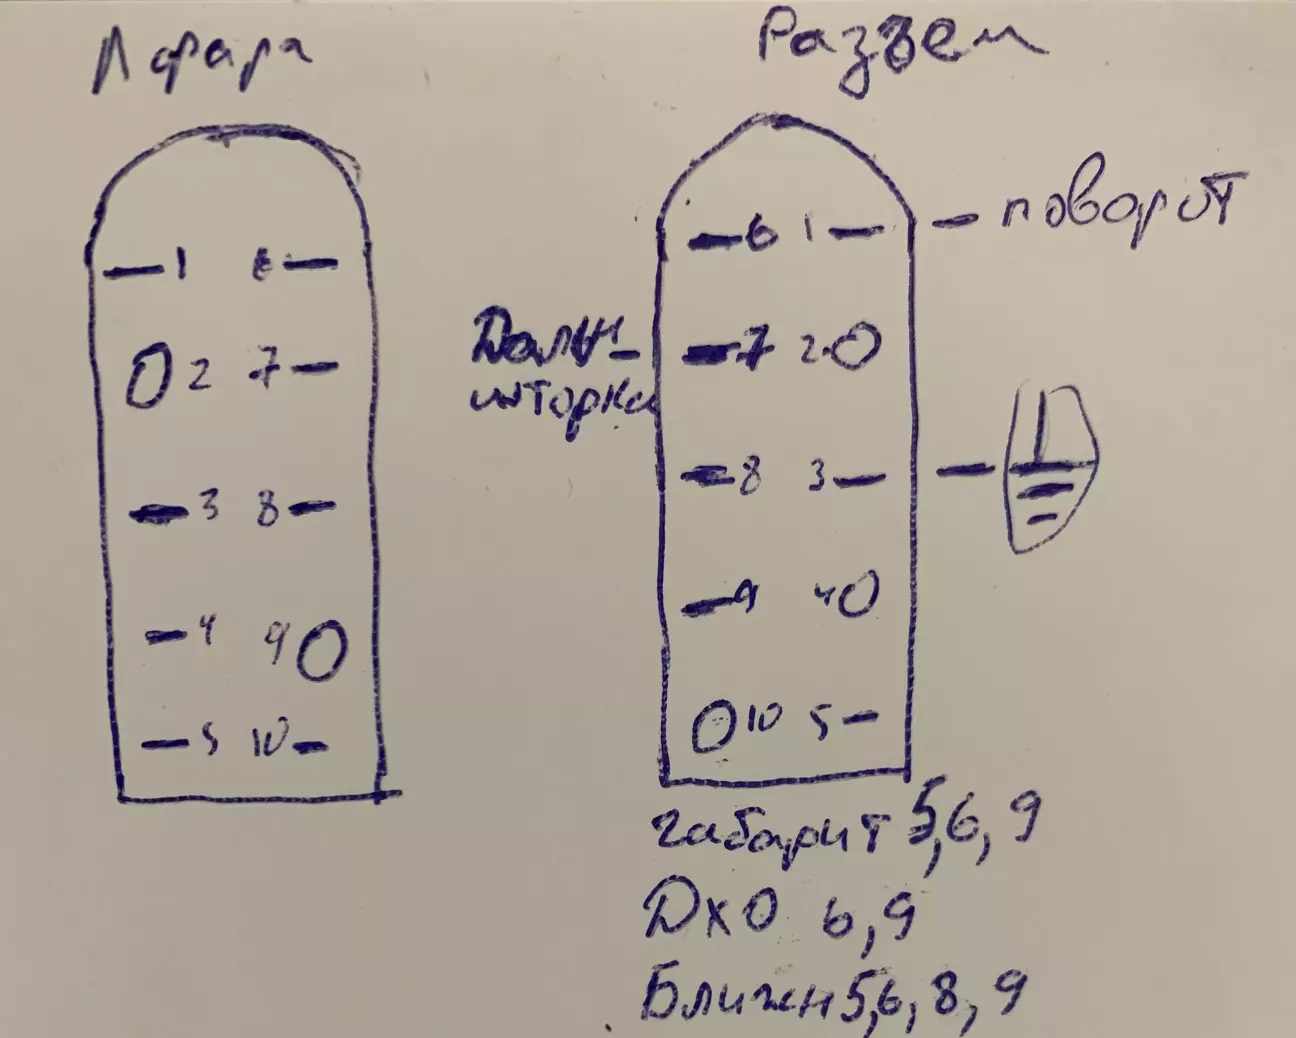 Л фара
Разъем
1 6
2 7
3 8
4 9
5 10
6 1 - поворот
Дальн -
шторка
7 2
8 3
9 4
10 5
габарит 5,6,9
ДХО 6,9
Ближн 5,6,8,9